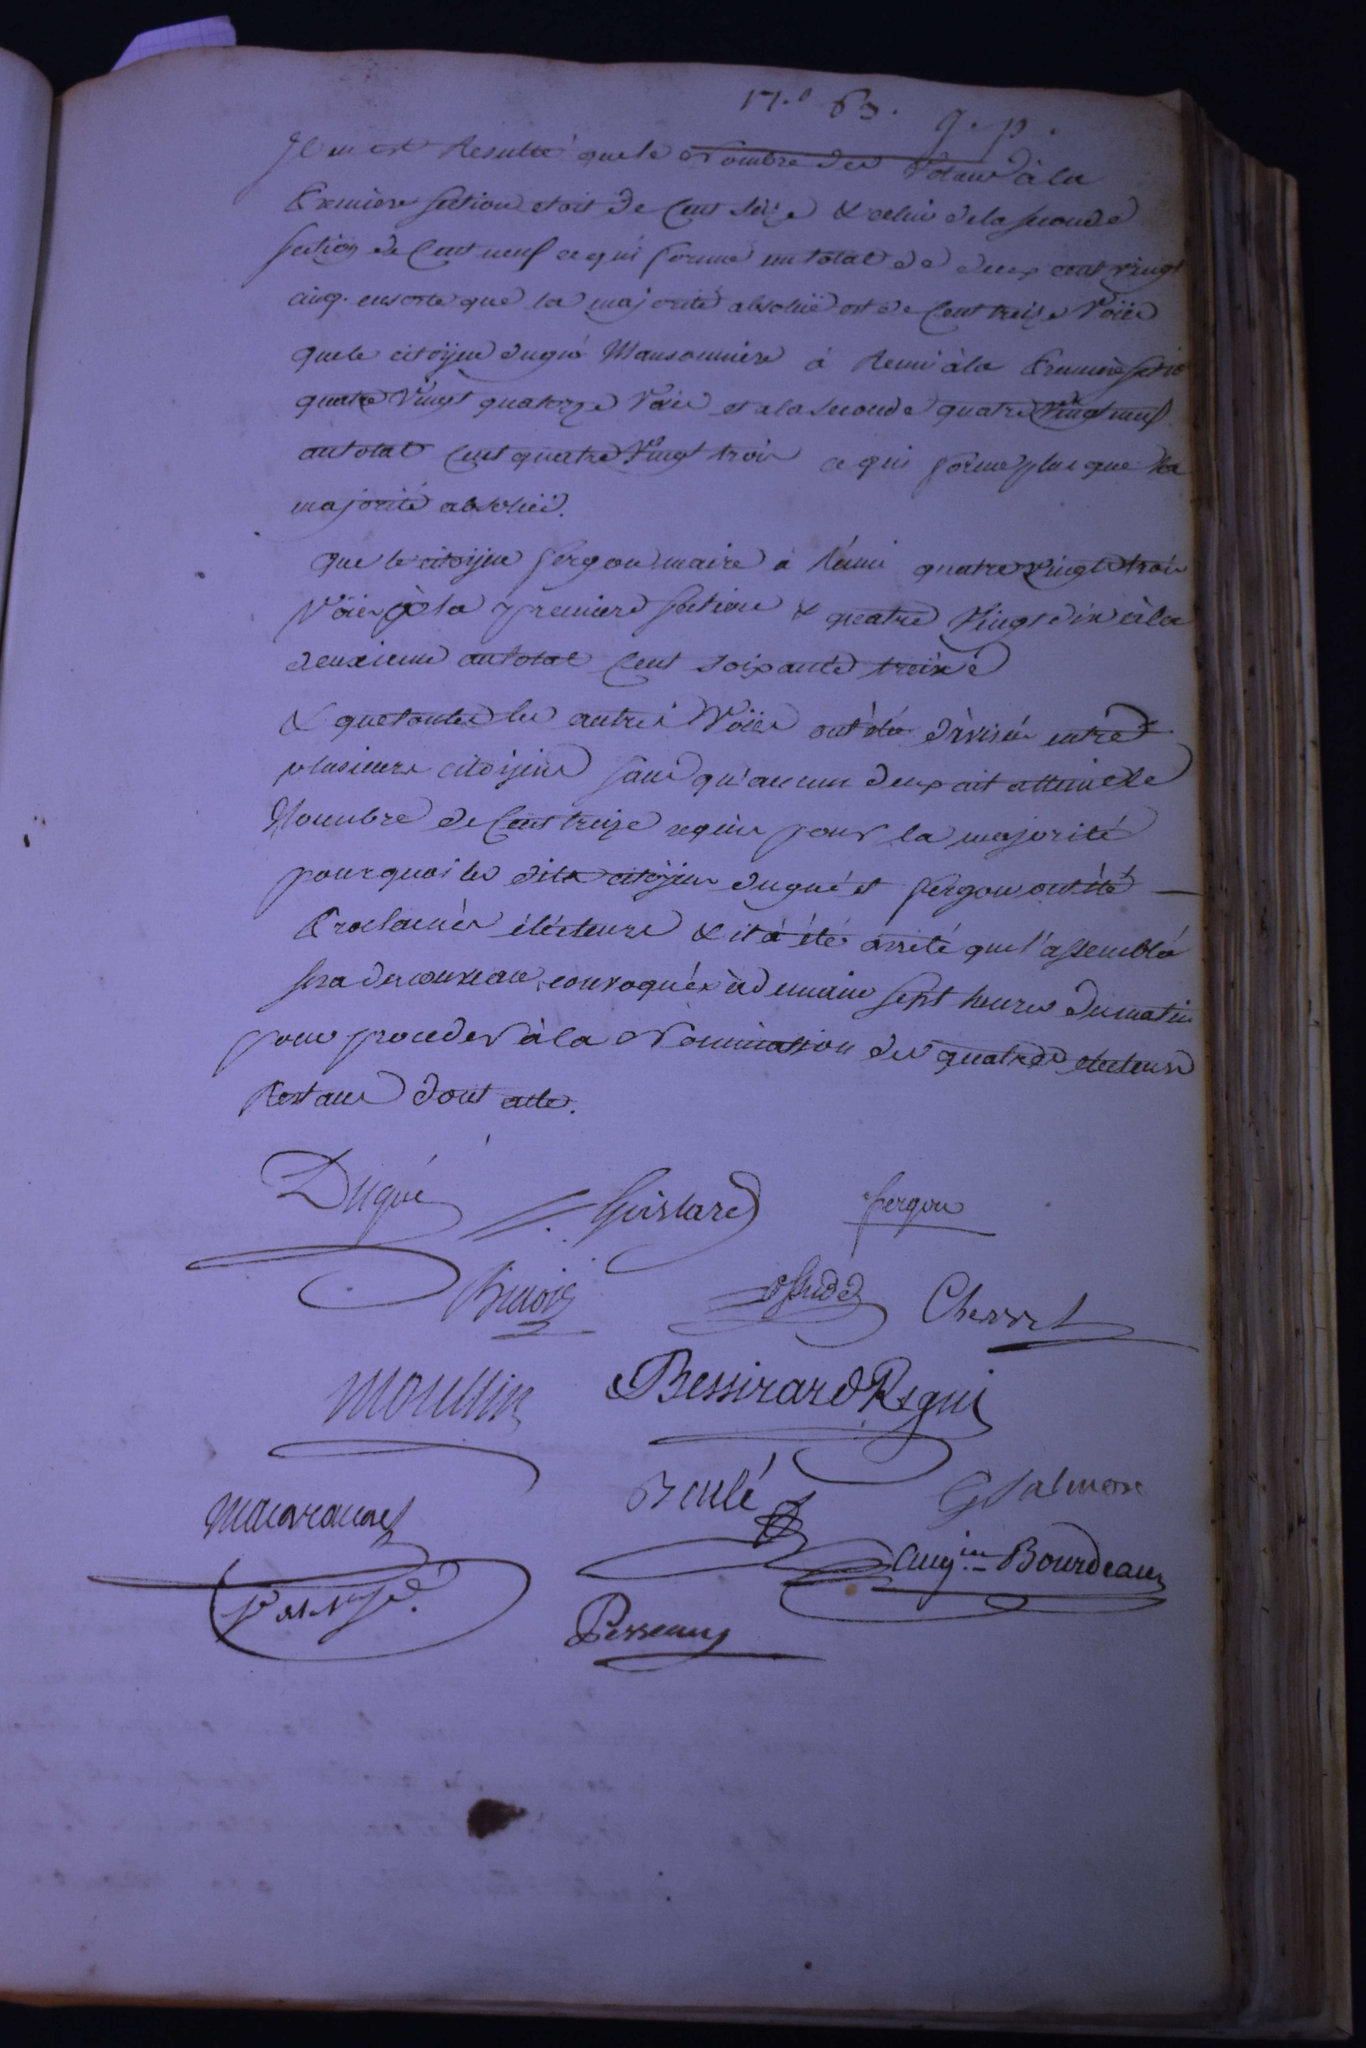 17.e 63. g. p.
Il en est Resulté que le Nombre des Votans à la
Premiere section etoit de Cent seize & celui de la seconde
section de Cent neuf ce qui forme un total de deux cent vingt
cinq. ensorte que la majorité absoluë est de Cent treize Voies
que le citoyen dugué Mansonniere à Reuni à la Premiere sectio
quatre Vingt quatorze Voies et a la seconde quatre Vingt neuf
au total Cent quatre Vingt trois ce qui forme plus que la
majorité absoluë.
que le citoyen fergon maire à Réuni quatre Vingt trois
Voies à la premiere section & quatre Vingt dix à la
deuxieme au total Cent soixante treize
& que toutes les autres Voies ont été divisées entre
plusieurs citoyens sans qu'aucun deux ait atteint le
Nombre de Cent treize requis pour la majorité
pourquoi les dits citoyens dugué et fergon ont été
Proclamés électeurs & il a été arrêté que l'assemblée
sera de nouveau convoquée à demain sept heures du matin
pour proceder à la Nomination des quatre electeurs
Restans dont acte.
Dugué Guislard fergon
Binois
Moussin Bessirard Regni
Boulé G Salmon
Aug.in Bourdeau